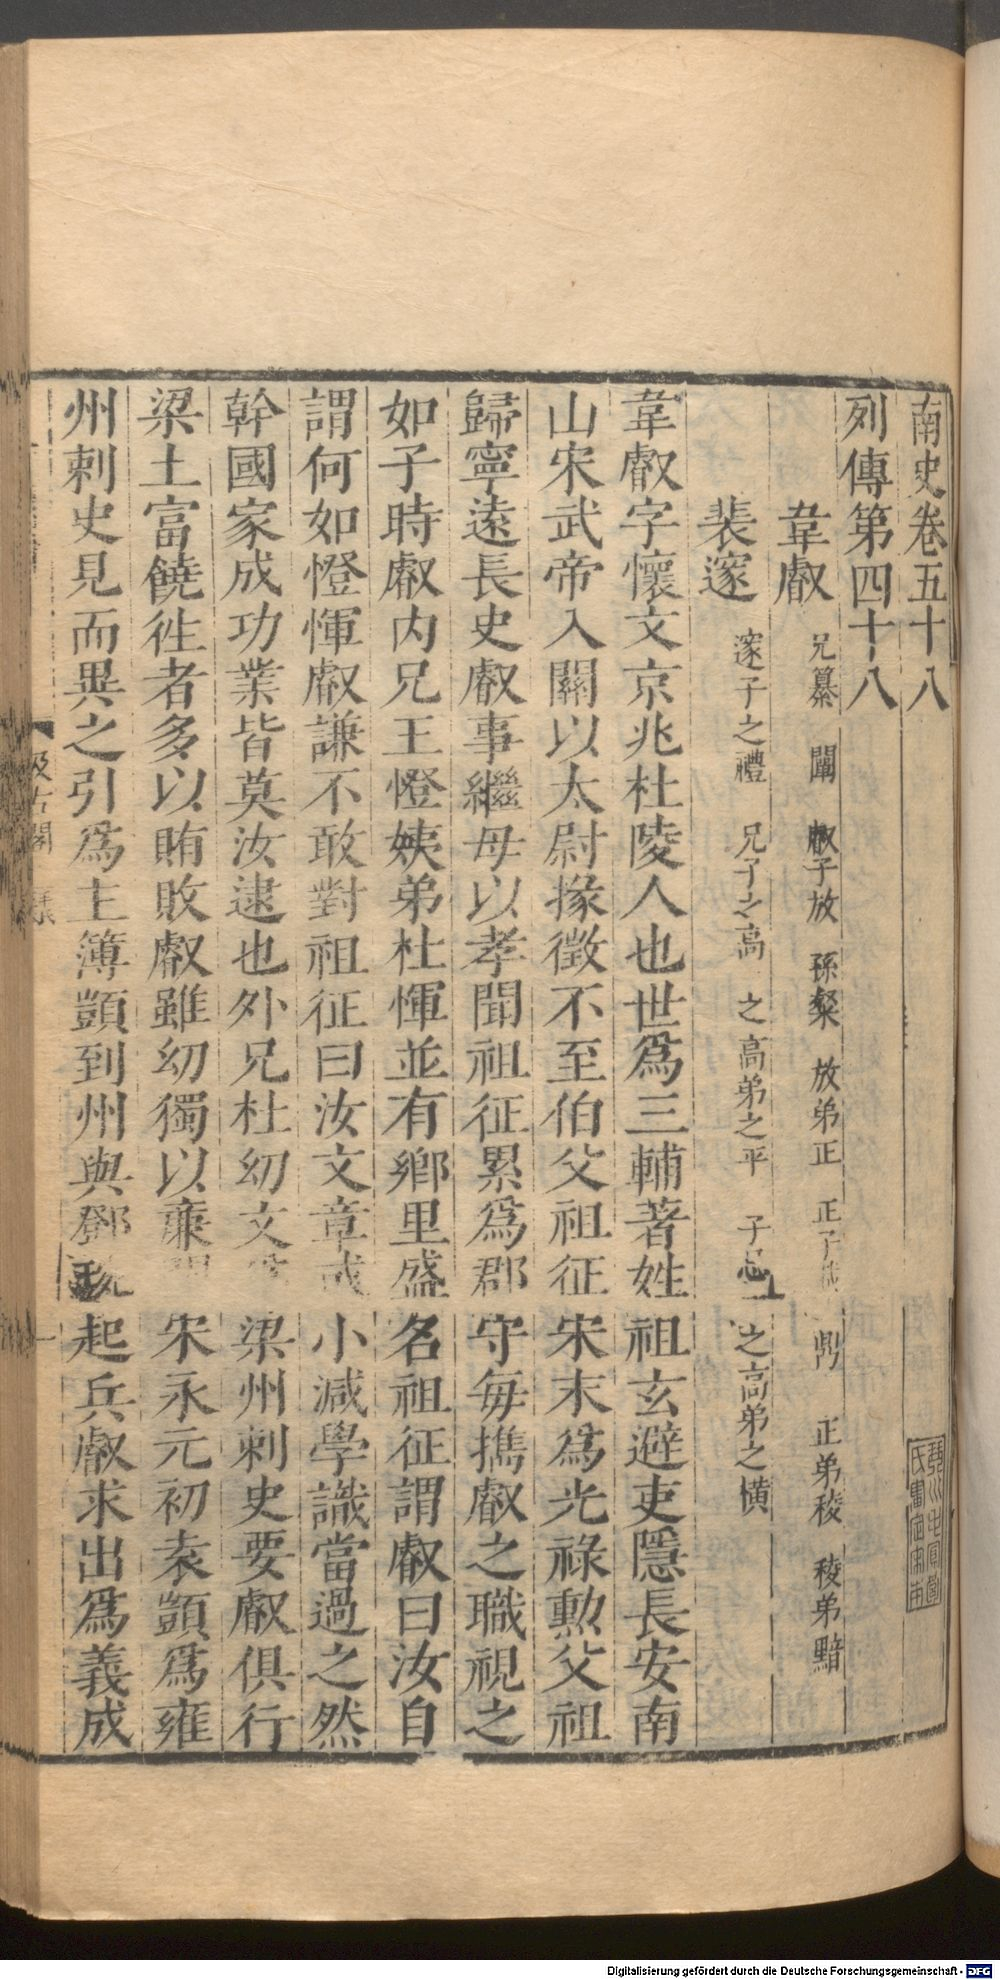 南史卷五十八
列傳第四十八
韋叡 兄纂 闡 叡子放 孫粲 放弟正 正子載 鼎 正弟稜 稜弟黯
裴邃 邃子之禮 兄子之高 之高弟之平 子忌 之高弟之橫
韋叡字懷文京兆杜陵人也世爲三輔著姓祖玄避吏隱長安南
山宋武帝入關以太尉掾徵不至伯父祖征宋末爲光祿勳父祖
歸寧遠長史叡事繼母以孝聞祖征累爲郡守每攜叡之職視之
如子時叡内兄王憕姨弟杜惲並有鄉里盛名祖征謂叡曰汝自
謂何如憕惲叡謙不敢對祖征曰汝文章或小減學識當過之然
幹國家成功業皆莫汝逮也外兄杜幼文爲梁州刺史要叡俱行
梁土富饒徃者多以賄敗叡雖幼獨以㢘聞宋永元初袁顗爲雍
州刺史見而異之引爲主簿顗到州與鄧琬起兵叡求出爲義成
汲古閣
Digitalisierung gefördert durch die Deutsche Forschungsgemeinschaft - DFG